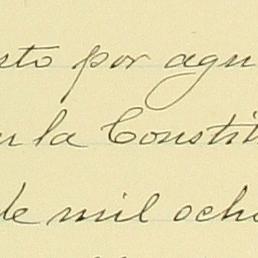 sto por agu
n la Constit
de mil oche